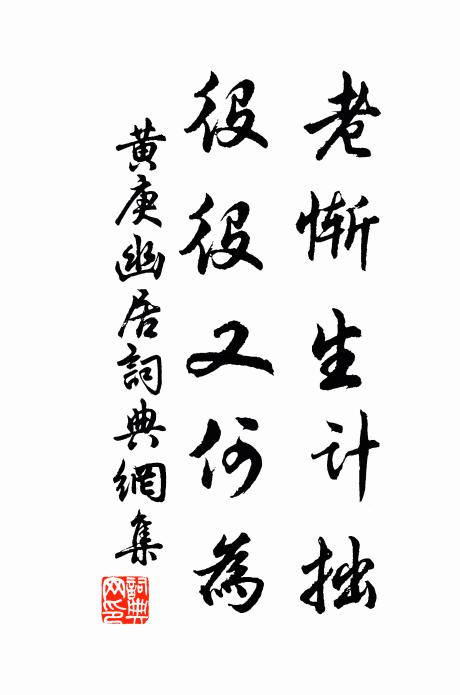 老惭生计拙
役役又何為
黄庚幽居詞典網集
詞典网印